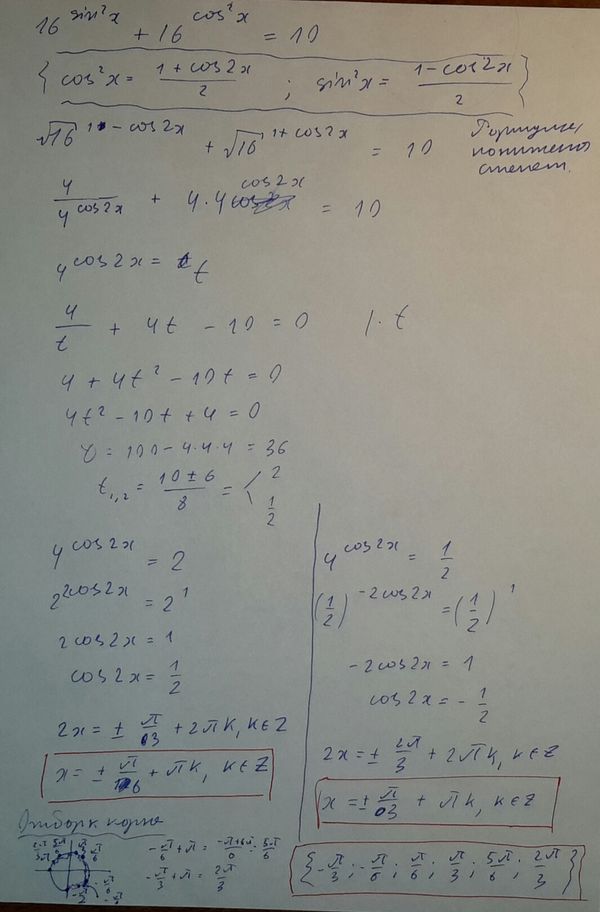 16^{sin²x} + 16^{cos²x} = 10
{ cos²x = \frac{1 + cos2x}{2} ; sin²x = \frac{1 - cos2x}{2} }
√16^{1 - cos2x} + √16^{1 + cos2x} = 10
Формулы
понижения
степени.
\frac{4}{4^{cos2x}} + 4·4^{cos2x} = 10
4^{cos2x} = t
\frac{4}{t} + 4t - 10 = 0 |· t
4 + 4t² - 10t = 0
4t² - 10t + 4 = 0
D = 100 - 4·4·4 = 36
t_{1,2} = \frac{10 ± 6}{8} = < 2
\frac{1}{2}
4^{cos2x} = 2
2^{2cos2x} = 2^1
2cos2x = 1
cos2x = \frac{1}{2}
2x = ± \frac{π}{3} + 2πk, k∈Z
x = ± \frac{π}{6} + πk, k∈Z
4^{cos2x} = \frac{1}{2}
(\frac{1}{2})^{-2cos2x} = (\frac{1}{2})^1
-2cos2x = 1
cos2x = -\frac{1}{2}
2x = ± \frac{2π}{3} + 2πk, k∈Z
x = ± \frac{π}{3} + πk, k∈Z
Отборк корне
-\frac{π}{6} + π = \frac{-π+6π}{6} = \frac{5π}{6}
-\frac{π}{3} + π = \frac{2π}{3}
{ -\frac{π}{3} ; -\frac{π}{6} ; \frac{π}{6} ; \frac{π}{3} ; \frac{5π}{6} ; \frac{2π}{3} }